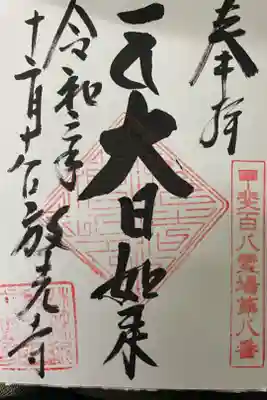 奉拝
甲斐百八霊場第八番
大日如来
令和二年
十二月十二日 放光寺